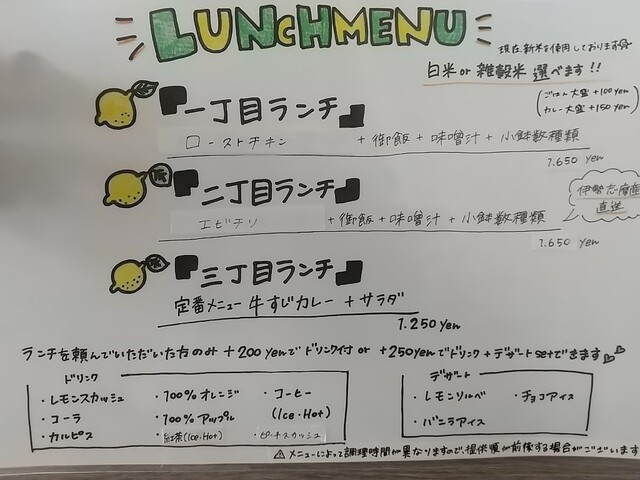 LUNCHMENU
現在、新米を使用しております
白米 or 雑穀米 選べます!!
(ごはん大盛 +100yen
カレー大盛 +150yen)
『一丁目ランチ』
ローストチキン + 御飯 + 味噌汁 + 小鉢数種類
1.650 yen
『二丁目ランチ』
伊勢志摩産
直送
エビチリ + 御飯 + 味噌汁 + 小鉢数種類
1.650 yen
『三丁目ランチ』
定番メニュー 牛すじカレー + サラダ
1.250yen
ランチを頼んでいただいた方のみ +200yenでドリンク付 or +250yenでドリンク+デザートsetできます
ドリンク
・レモンスカッシュ ・100%オレンジ ・コーヒー
・コーラ ・100%アップル (Ice・Hot)
・カルピス ・紅茶(Ice・Hot) ・ピーチスカッシュ
デザート
・レモンソルベ ・チョコアイス
・バニラアイス
⚠メニューによって調理時間が異なりますので、提供順が前後する場合がございます